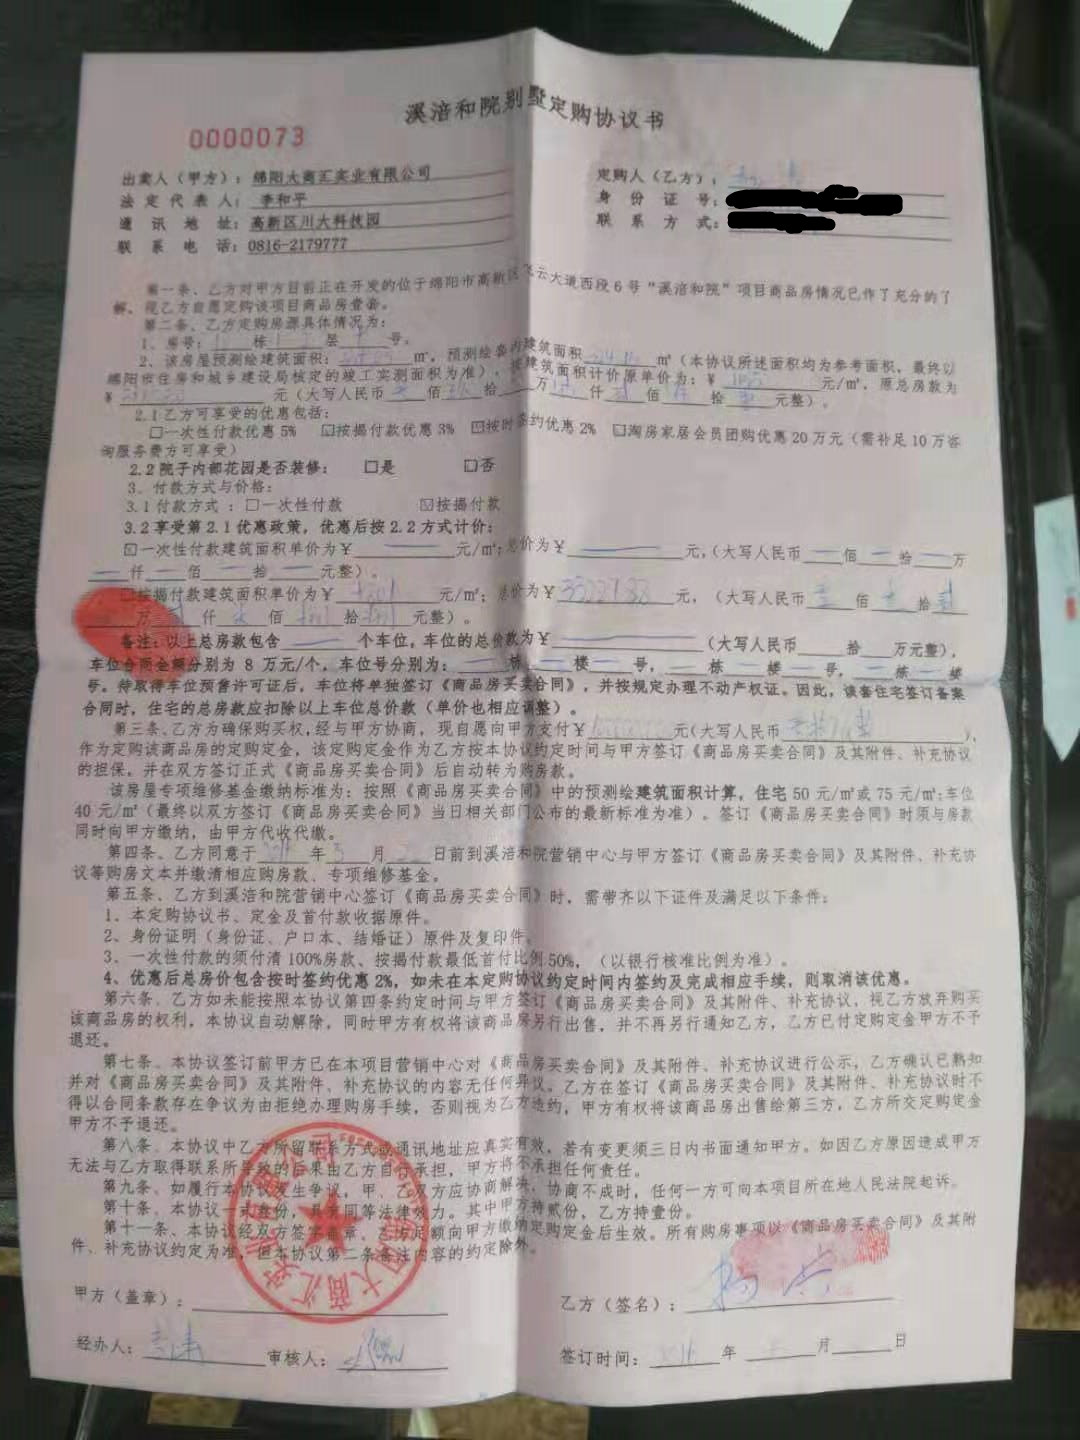 溪涪和院别墅定购协议书
0000073
出卖人（甲方）：绵阳大商汇实业有限公司
法定代表人：李和平
通讯地址：高新区川大科技园
联系电话：0816-2179777
定购人（乙方）：
身份证号：
联系方式：
第一条、乙方对甲方目前正在开发的位于绵阳市高新区飞云大道西段6号“溪涪和院”项目商品房情况已作了充分的了
解，现乙方自愿定购该项目商品房壹套。
第二条、乙方定购房源具体情况为：
1、房号：栋层号。
2、该房屋预测绘建筑面积：㎡，预测绘套内建筑面积㎡（本协议所述面积均为参考面积，最终以
绵阳市住房和城乡建设局核定的竣工实测面积为准），按建筑面积计价原单价为：￥元/㎡，原总房款为
￥元（大写人民币佰拾万仟佰拾元整）。
2.1乙方可享受的优惠包括：
□一次性付款优惠5% ☑按揭付款优惠3% ☑按时签约优惠2% ☑淘房家居会员团购优惠20万元（需补足10万咨
询服务费方可享受）
2.2院子内部花园是否装修： □是 □否
3、付款方式与价格：
3.1付款方式：□一次性付款 ☑按揭付款
3.2享受第2.1优惠政策，优惠后按2.2方式计价：
一次性付款建筑面积单价为￥元/㎡；总价为￥元，（大写人民币佰拾万
仟佰拾元整）。
按揭付款建筑面积单价为￥元/㎡；总价为￥元，（大写人民币佰拾
万仟佰拾元整）。
备注：以上总房款包含个车位，车位的总价款为￥（大写人民币拾万元整），
车位合同金额分别为8万元/个，车位号分别为：栋楼号，栋楼号，栋楼
号。待取得车位预售许可证后，车位将单独签订《商品房买卖合同》，并按规定办理不动产权证。因此，该套住宅签订备案
合同时，住宅的总房款应扣除以上车位总价款（单价也相应调整）。
第三条、乙方为确保购买权，经与甲方协商，现自愿向甲方支付￥元（大写人民币），
作为定购该商品房的定购定金，该定购定金作为乙方按本协议约定时间与甲方签订《商品房买卖合同》及其附件、补充协议
的担保，并在双方签订正式《商品房买卖合同》后自动转为购房款。
该房屋专项维修基金缴纳标准为：按照《商品房买卖合同》中的预测绘建筑面积计算，住宅50元/㎡或75元/㎡；车位
40元/㎡（最终以双方签订《商品房买卖合同》当日相关部门公布的最新标准为准）。签订《商品房买卖合同》时须与房款
同时向甲方缴纳，由甲方代收代缴。
第四条、乙方同意于年3月日前到溪涪和院营销中心与甲方签订《商品房买卖合同》及其附件、补充协
议等购房文本并缴清相应购房款、专项维修基金。
第五条、乙方到溪涪和院营销中心签订《商品房买卖合同》时，需带齐以下证件及满足以下条件：
1、本定购协议书、定金及首付款收据原件。
2、身份证明（身份证、户口本、结婚证）原件及复印件。
3、一次性付款的须付清100%房款、按揭付款最低首付比例50%，（以银行核准比例为准）。
4、优惠后总房价包含按时签约优惠2%，如未在本定购协议约定时间内签约及完成相应手续，则取消该优惠。
第六条、乙方如未能按照本协议第四条约定时间与甲方签订《商品房买卖合同》及其附件、补充协议，视乙方放弃购买
该商品房的权利，本协议自动解除，同时甲方有权将该商品房另行出售，并不再另行通知乙方，乙方已付定购定金甲方不予
退还。
第七条、本协议签订前甲方已在本项目营销中心对《商品房买卖合同》及其附件、补充协议进行公示，乙方确认已熟知
并对《商品房买卖合同》及其附件、补充协议的内容无任何异议。乙方在签订《商品房买卖合同》及其附件、补充协议时不
得以合同条款存在争议为由拒绝办理购房手续，否则视为乙方违约，甲方有权将该商品房出售给第三方，乙方所交定购定金
甲方不予退还。
第八条、本协议中乙方所留联系方式或通讯地址应真实有效，若有变更须三日内书面通知甲方。如因乙方原因造成甲方
无法与乙方取得联系所导致的后果由乙方自行承担，甲方将不承担任何责任。
第九条、如履行本协议发生争议，甲、乙双方应协商解决，协商不成时，任何一方可向本项目所在地人民法院起诉。
第十条、本协议一式叁份，具有同等法律效力。其中甲方持贰份，乙方持壹份。
第十一条、本协议经双方签字盖章、乙方足额向甲方缴纳定购定金后生效。所有购房事项以《商品房买卖合同》及其附
件、补充协议约定为准，但本协议第二条备注内容的约定除外。
甲方（盖章）：
乙方（签名）：
经办人：
审核人：
签订时间：年月日